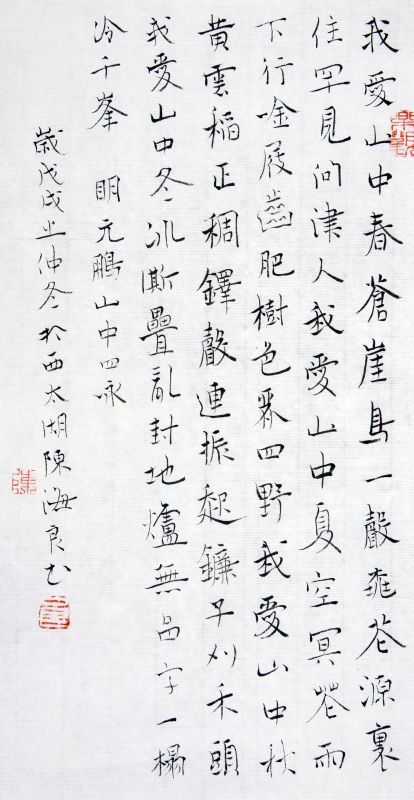 我愛山中春蒼崖鳥一聲桃花源裏
住罕見問津人我愛山中夏空冥花雨
下行吟屐齒肥樹色四野我愛山中秋
黄雲稻正稠鐸聲連振起鐮子刈禾頭
我愛山中冬冰澌疊亂封地爐無品字一榻
冷千峯 明元鵬山中四咏
歲戊戌之仲冬於西太湖陳海良书
陳